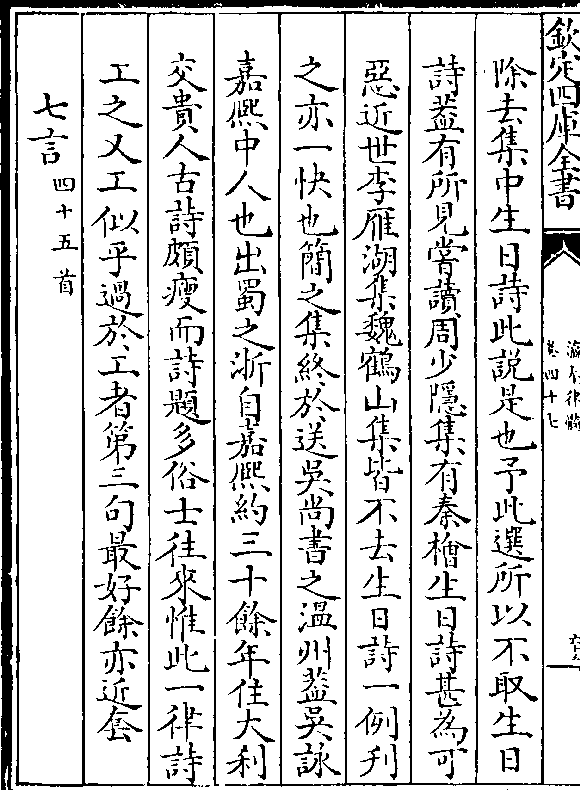 欽定四庫全書
瀛奎律髓
卷四十七
除去集中生日詩此説是也予此選所以不取生日
詩葢有所見嘗讀周少隱集有秦檜生日詩甚為可
惡近世李雁湖集魏鶴山集皆不去生日詩一例刋
之亦一快也簡之集終於送吳尚書之溫州葢吳詠
嘉熙中人也出蜀之浙自嘉熙約三十餘年住大利
交貴人古詩頗瘦而詩題多俗士往來惟此一律詩
工之又工似乎過於工者第三句最好餘亦近套
七言四十五首